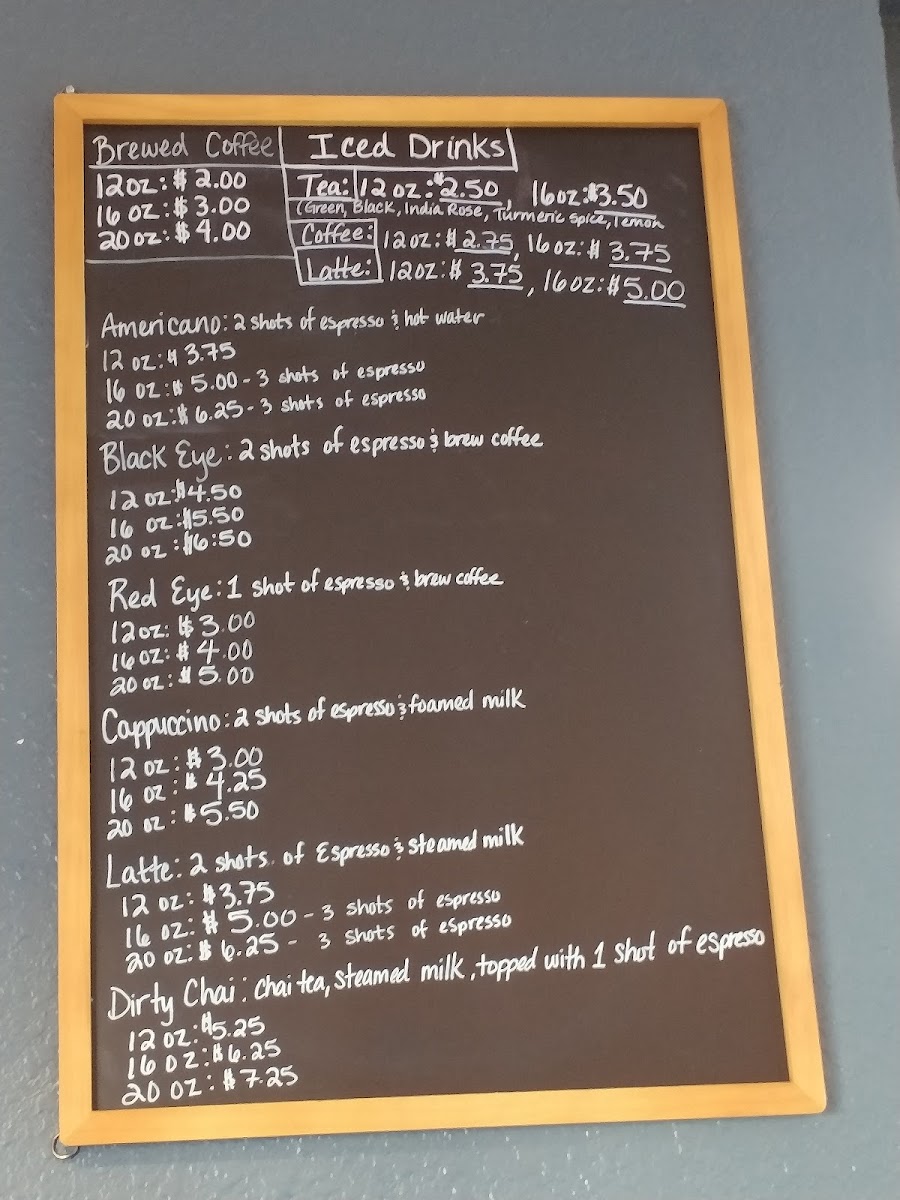 Brewed Coffee
12oz: $ 2.00
16 oz: $ 3.00
20 oz: $ 4.00
Iced Drinks
Tea: 12 oz: $2.50, 16oz: $3.50
(Green, Black, India Rose, Turmeric spice, lemon
Coffee: 12 oz: $ 2.75, 16 oz: $ 3.75
Latte: 12oz: $ 3.75, 16 oz: $5.00
Americano: 2 shots of espresso & hot water
12 oz: $ 3.75
16 oz: $ 5.00 - 3 shots of espresso
20 oz: $ 6.25 - 3 shots of espresso
Black Eye: 2 shots of espresso & brew coffee
12 oz: $4.50
16 oz: $5.50
20 oz: $6:50
Red Eye: 1 shot of espresso & brew coffee
12oz: $ 3.00
16oz: $ 4.00
20 oz: $ 5.00
Cappuccino: 2 shots of espresso & foamed milk
12 oz: $ 3.00
16 oz: $ 4.25
20 oz: $ 5.50
Latte: 2 shots of Espresso & steamed milk
12 oz: $3.75
16 oz: $ 5.00 - 3 shots of espresso
20 oz: $ 6.25 - 3 shots of espresso
Dirty Chai: chai tea, steamed milk, topped with 1 shot of espresso
12 oz: $5.25
16 oz: $6.25
20 oz: $7.25